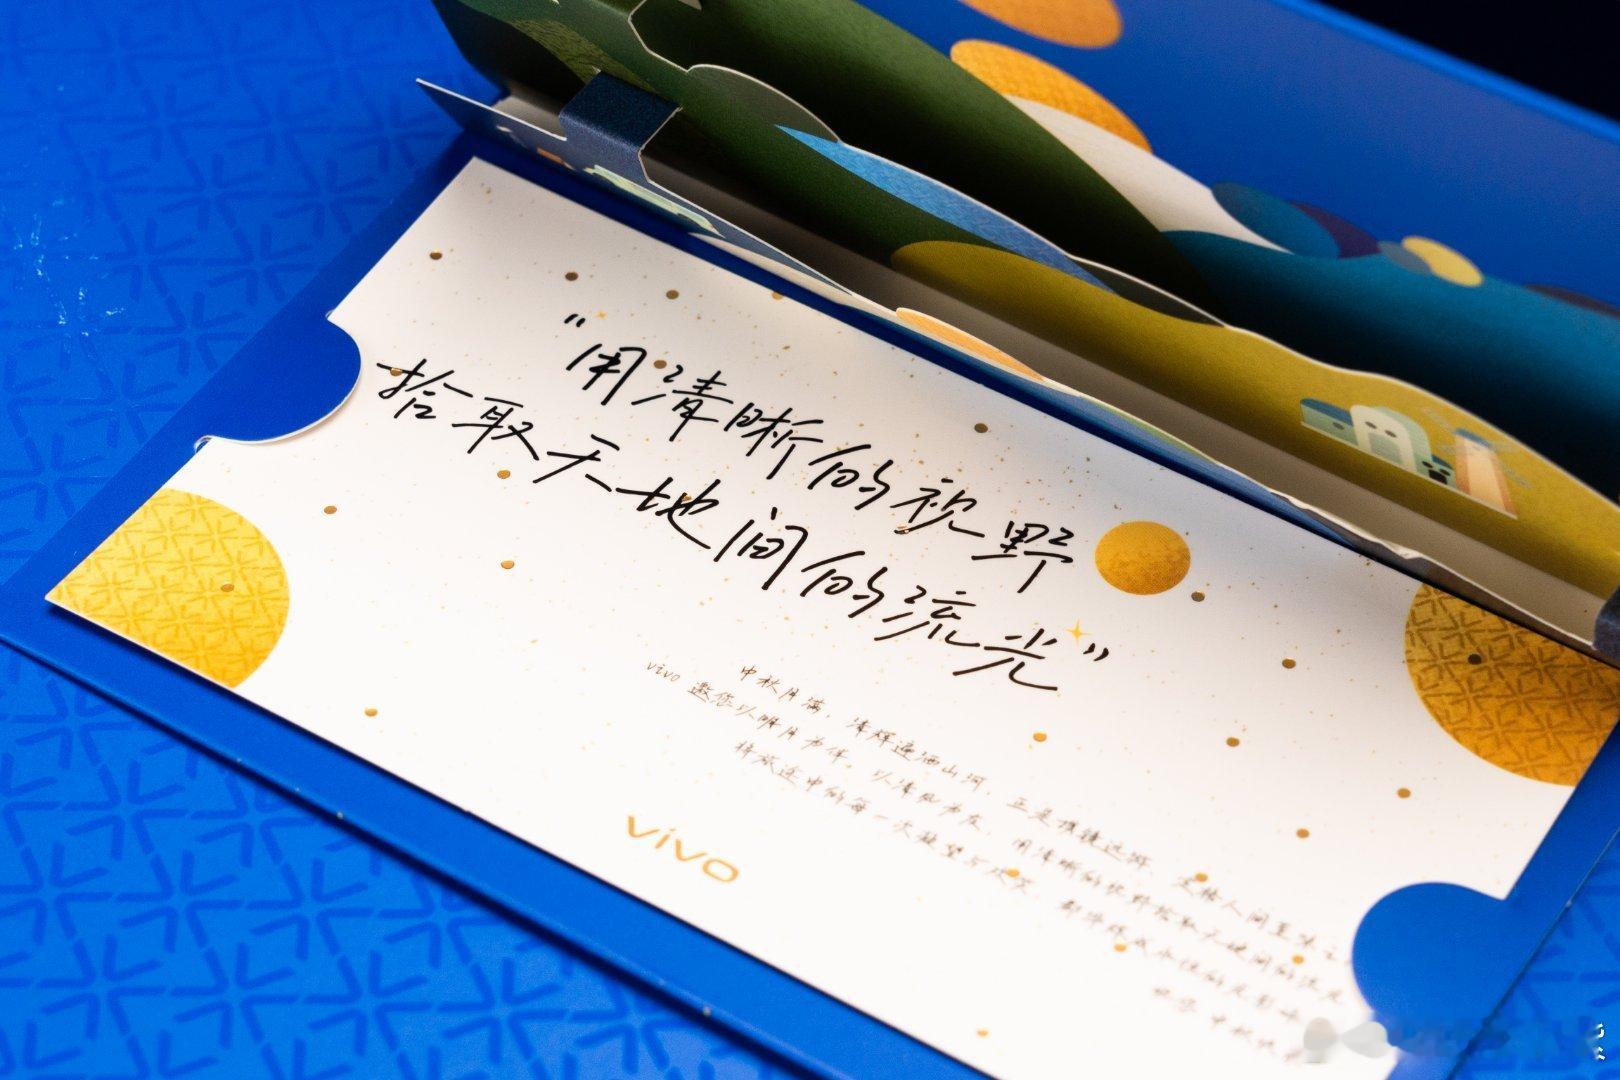 “用清晰的视野
拾取天地间的流光”
中秋月满，清辉遍洒山河，正是携镜远游、定格人间至味之
vivo 邀您以明月为伴，以清风为友，用清晰的视野拾取天地间的流光
将旅途中的每一次凝望与欢笑，都淬炼成永恒的光影
祝您 中秋
vivo